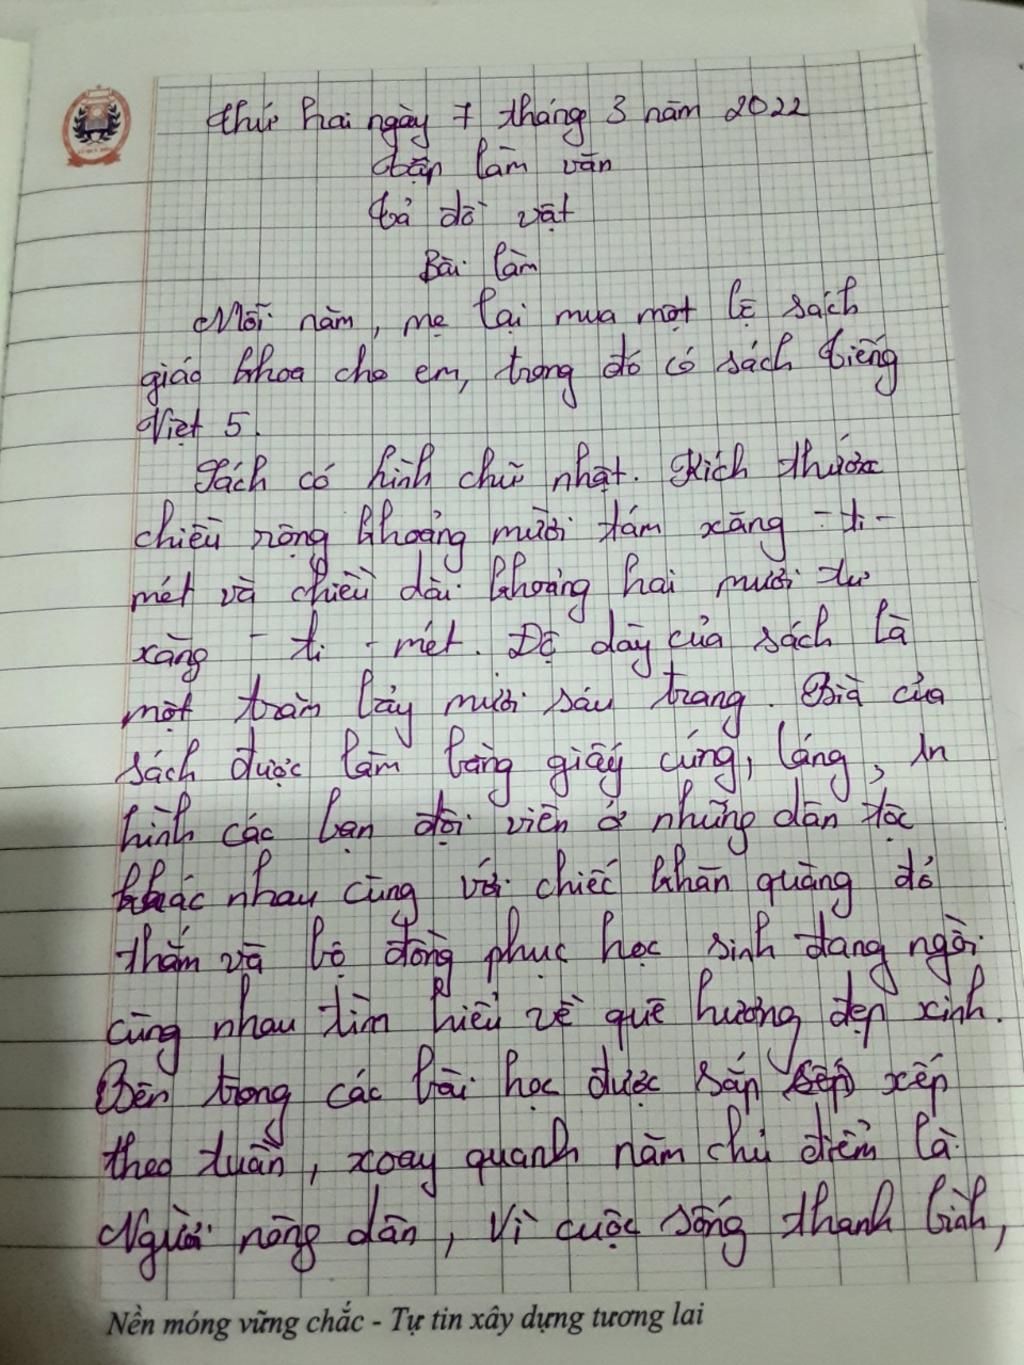 thứ hai ngày 7 tháng 3 năm 2022
tập làm văn
tả đồ vật
Bài làm
Mỗi năm, mẹ lại mua một bộ sách
giáo khoa cho em, trong đó có sách tiếng
Việt 5.
Sách có hình chữ nhật. Kích thước
chiều rộng khoảng mười tám xăng - ti -
mét và chiều dài khoảng hai mươi tư
xăng - ti - mét. Độ dày của sách là
một trăm bảy mươi sáu trang. Bìa của
sách được làm bằng giấy cứng, láng, in
hình các bạn đội viên ở những dân tộc
khác nhau cùng với chiếc khăn quàng đỏ
thắm và bộ đồng phục học sinh đang ngồi
cùng nhau tìm hiểu về quê hương đẹp xinh.
Bên trong các bài học được sắp xếp
theo tuần, xoay quanh năm chủ điểm là
Người nông dân, Vì cuộc sống thanh bình,
Nền móng vững chắc - Tự tin xây dựng tương lai